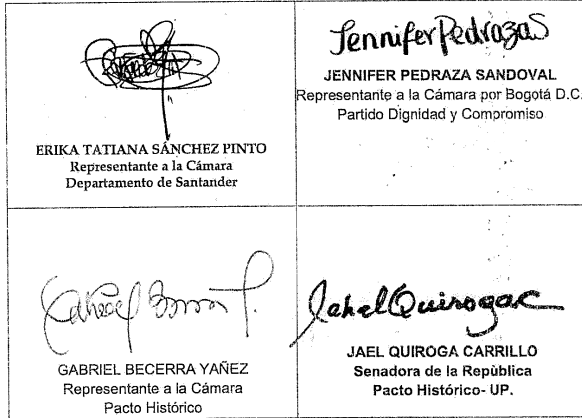 ERIKA TATIANA SÁNCHEZ PINTO
Representante a la Cámara
Departamento de Santander
JenniferPedrazaS
JENNIFER PEDRAZA SANDOVAL
Representante a la Cámara por Bogotá D.C.
Partido Dignidad y Compromiso
Gabriel Becerra Y.
GABRIEL BECERRA YAÑEZ
Representante a la Cámara
Pacto Histórico
Jahel Quiroga C
JAEL QUIROGA CARRILLO
Senadora de la República
Pacto Histórico- UP.